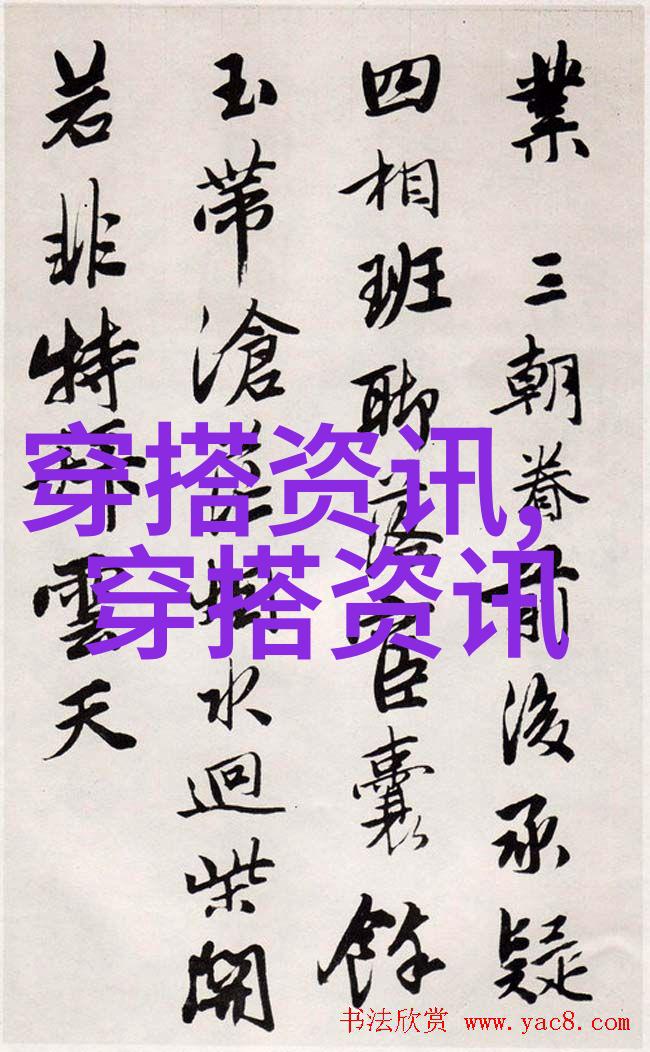 業 三朝眷前後承疑
四相班聊落官臣囊餘
玉帶滄水迴柴開
若非特 雲天
穿搭资讯,
穿搭资讯
书法欣赏 www.yac8.com